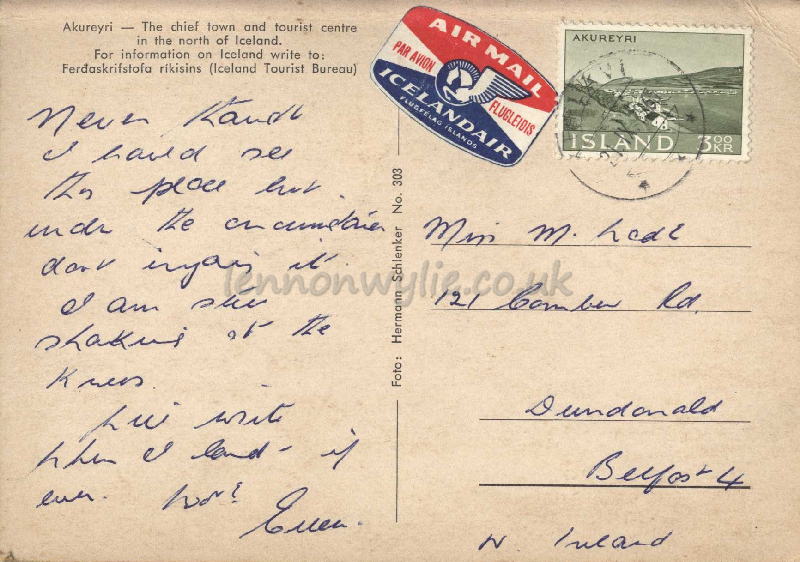 Akureyri — The chief town and tourist centre
in the north of Iceland.
For information on Iceland write to:
Ferðaskrifstofa ríkisins (Iceland Tourist Bureau)
Never
I see
this place but
under the
dont enjoy it.
I am still
shaking at the
knees.
write
when I land - if
ever.
Foto: Hermann Schlenker No. 303
AIR MAIL
PAR AVION
FLUGLEIÐIS
ICELANDAIR
FLUGFÉLAG ÍSLANDS
AKUREYRI
ÍSLAND 3.00
KR
Miss M.
121 Comber Rd.
Dundonald
Belfast 4
N Ireland
lennonwylie.co.uk